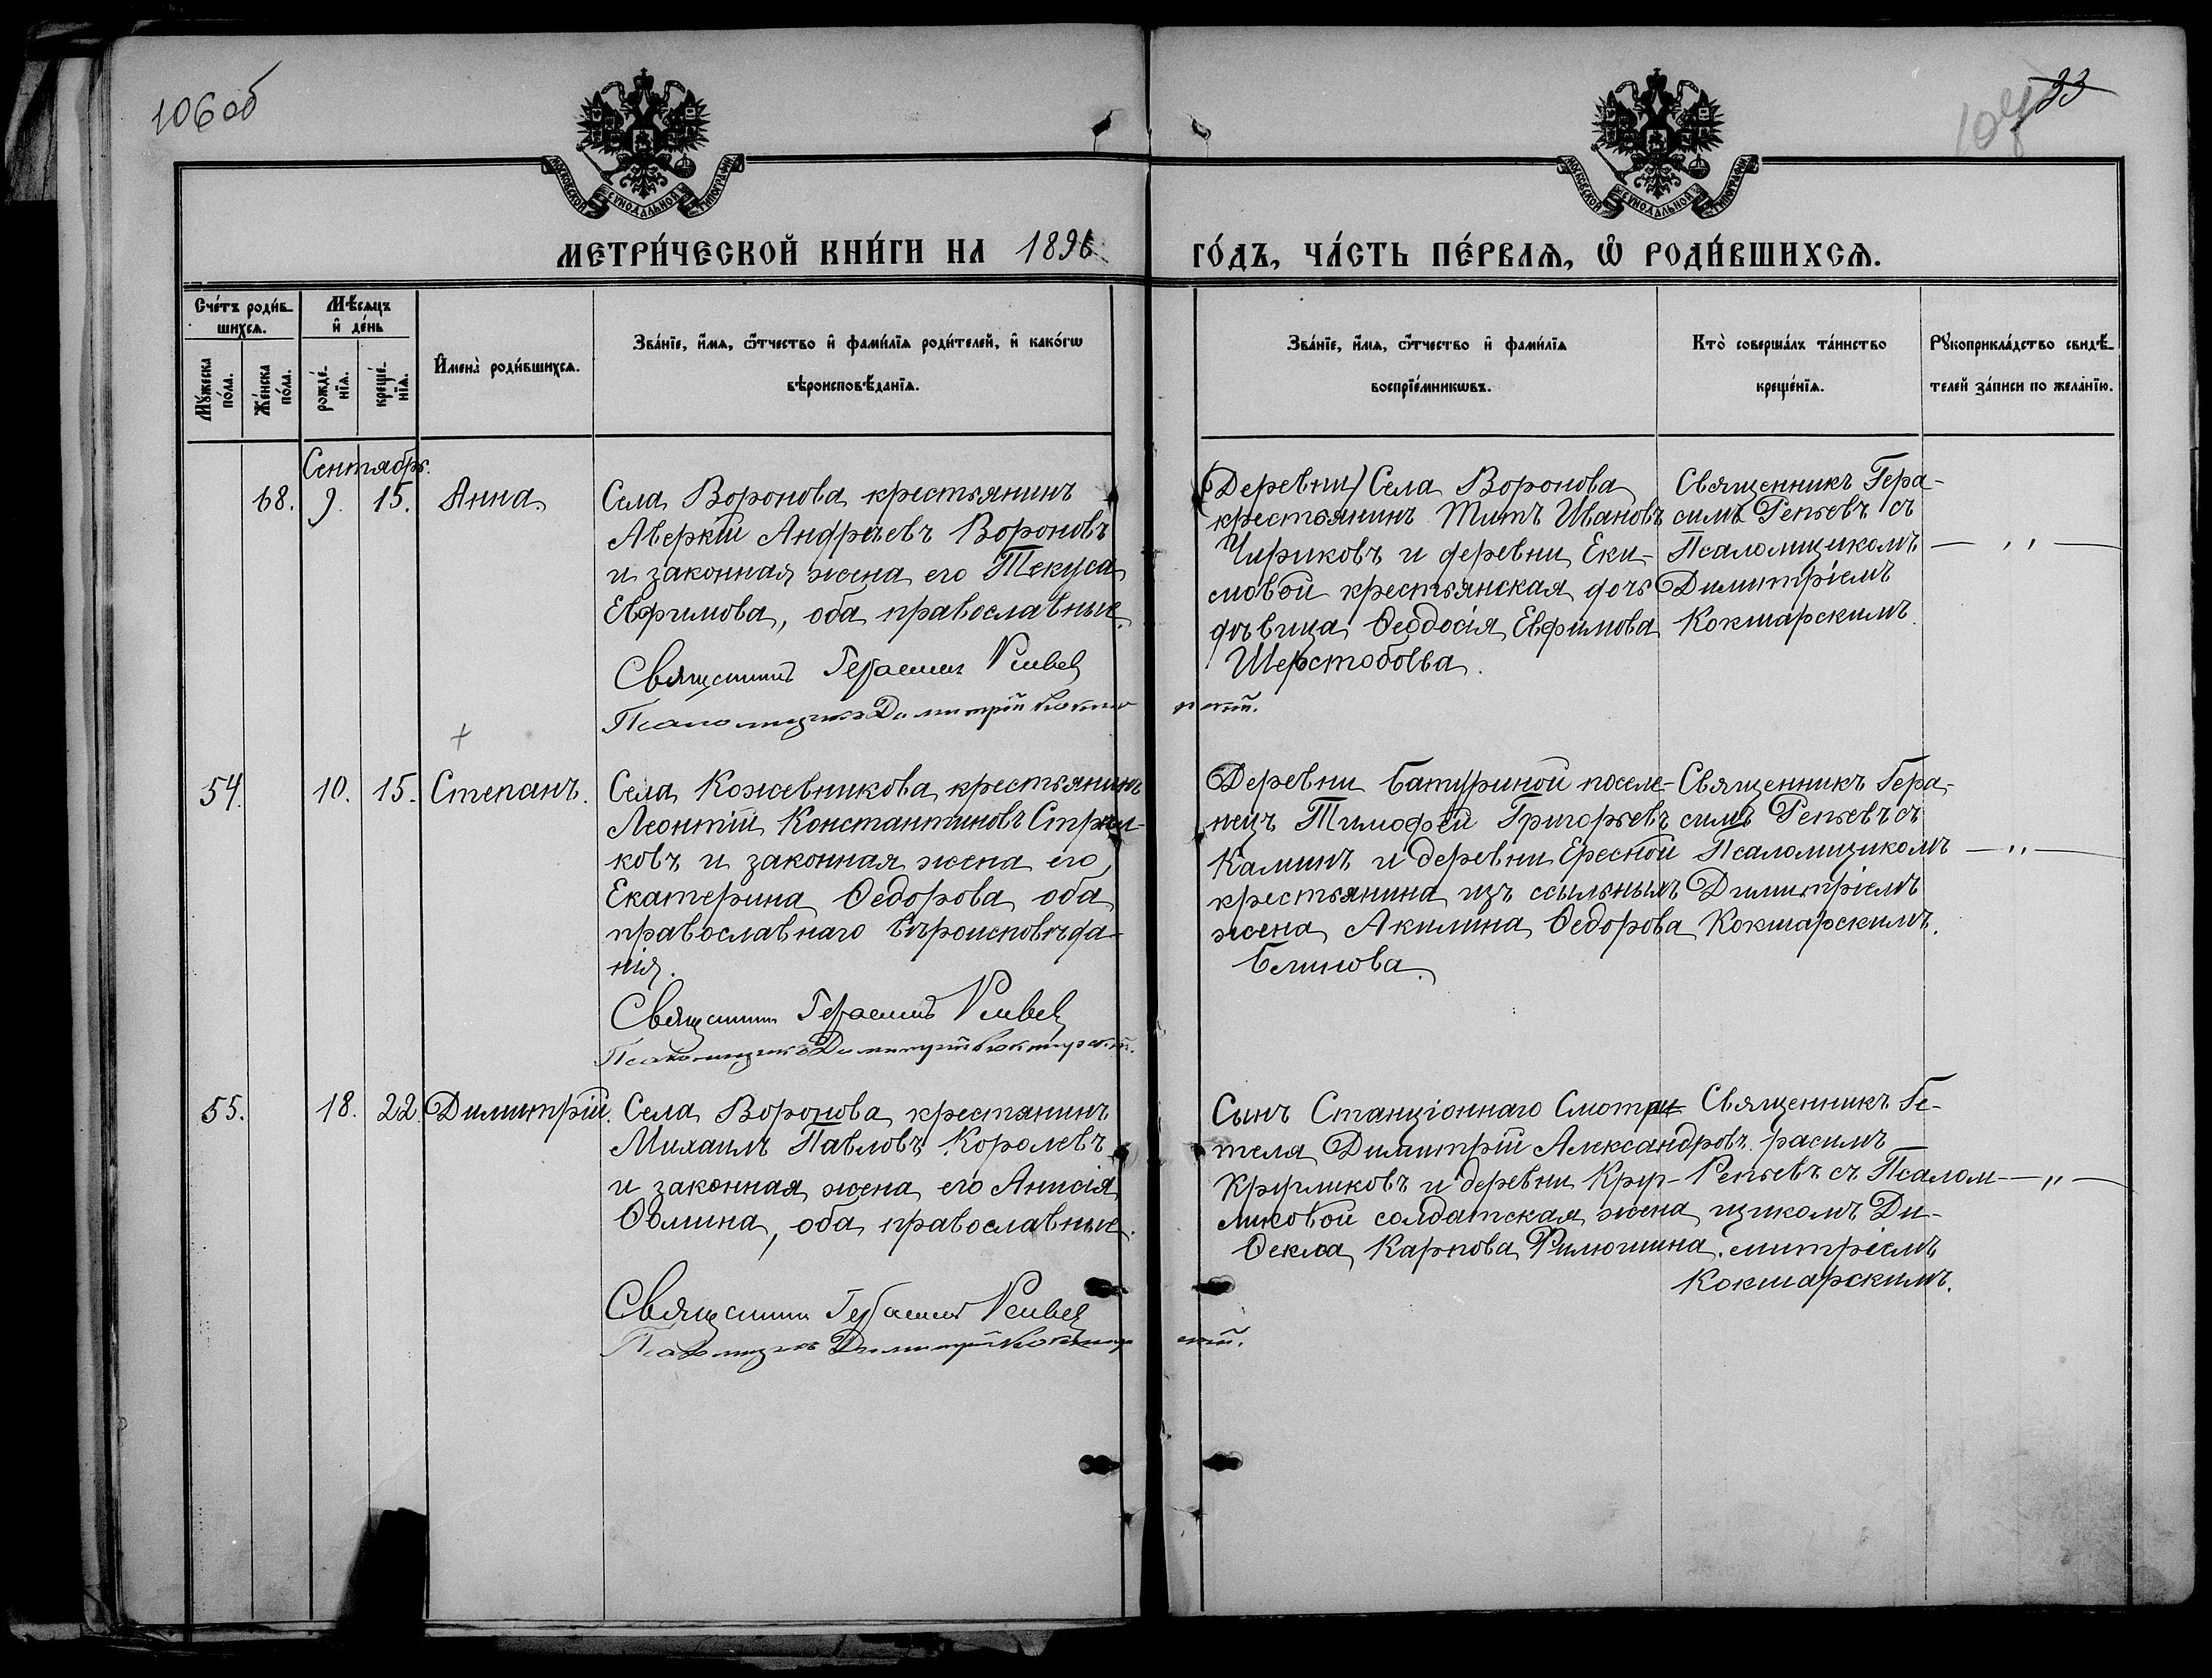 106 об
107 33
МОСКОВСКОЙ СѴНОДАЛЬНОЙ ТИПОГРАФІИ
МОСКОВСКОЙ СѴНОДАЛЬНОЙ ТИПОГРАФІИ
МЕТРИ́ЧЕСКОЙ КНИ́ГИ НА 1896 ГО́ДЪ, ЧА́СТЬ ПЕ́РВАѦ, Ѡ РОДИ́ВШИХСѦ.
Сче́тъ роди́в-
шихсѧ.
Мѣ́сѧцъ
и де́нь
Мꙋ́жеска
по́ла.
Же́нска
по́ла.
рожде́-
нїѧ.
креще́-
нїѧ.
Имена̀ роди́вшихсѧ.
Зва́нїе, и́мѧ, ѻ́тчество и фами́лїѧ роди́телей, и како́гѡ
вѣроисповѣ́данїѧ.
Зва́нїе, и́мѧ, ѻ́тчество и фами́лїѧ
воспрїе́мникѡвъ.
Кто̀ соверша́лъ та́инство
креще́нїѧ.
Рꙋкоприкла́дство свидѣ́-
телей за́писи по жела́нїю.
Сентябрь.
68. 9. 15. Анна.
Села Воронова крестьянинъ
Аверкій Андреевъ Вороновъ
и законная жена его Текуса
Евфимова, оба православные.
Священникъ Герасимъ Репьев
Псаломщикъ Димитрій Кокшарскій.
(Деревни) Села Воронова
крестьянинъ Титъ Ивановъ
Чириковъ и деревни Еки-
мовой крестьянская дочь
дѣвица Ѳеодосія Евфимова
Шерстобоева.
Священникъ Гера-
симъ Репьевъ съ
Псаломщикомъ — „ —
Димитріемъ
Кокшарскимъ.
54. 10. 15. Степанъ.
Села Кожевникова крестьянинъ
Леонтій Константиновъ Стрюи-
ковъ и законная жена его
Екатерина Ѳедорова оба
православнаго вѣроисповѣда-
нія.
Священникъ Герасимъ Репьев
Псаломщикъ Димитрій Кокшарскій.
Деревни Батуриной поселе-
нецъ Тимофей Григорьевъ
Калинъ и деревни Ересной
крестьянина изъ ссыльныхъ
жена Акилина Ѳедорова
Белинова.
Священникъ Гера-
симъ Репьевъ съ
Псаломщикомъ — „ —
Димитріемъ
Кокшарскимъ.
55. 18. 22. Димитрій.
Села Воронова крестянинъ
Михаилъ Павловъ Королевъ
и законная жена его Анисія
Ѳомина, оба православные.
Священникъ Герасимъ Репьев
Псаломщикъ Димитрій Кокшарскій.
Сынъ Станціоннаго Смотри-
теля Димитрій Александровъ
Кругликовъ и деревни Круг-
ликовой солдатская жена
Ѳекла Карпова Филюшина.
Священникъ Ге-
расимъ
Репьевъ съ Псалом- — „ —
щикомъ Ди-
митріемъ
Кокшарскимъ.